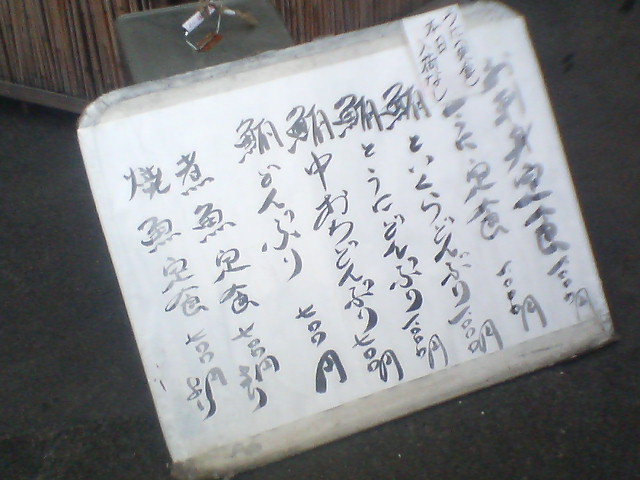 お刺身定食 一、〇〇〇円
うに定食 一、〇〇〇円
うに定食
本日入荷なし
鮪といくらどんぶり 一、〇〇〇円
鮪とうにどんぶり 一、〇〇〇円
鮪中おちどんぶり 七〇〇円
鮪どんぶり 七〇〇円
煮魚定食 七〇〇円より
焼魚定食 七〇〇円より